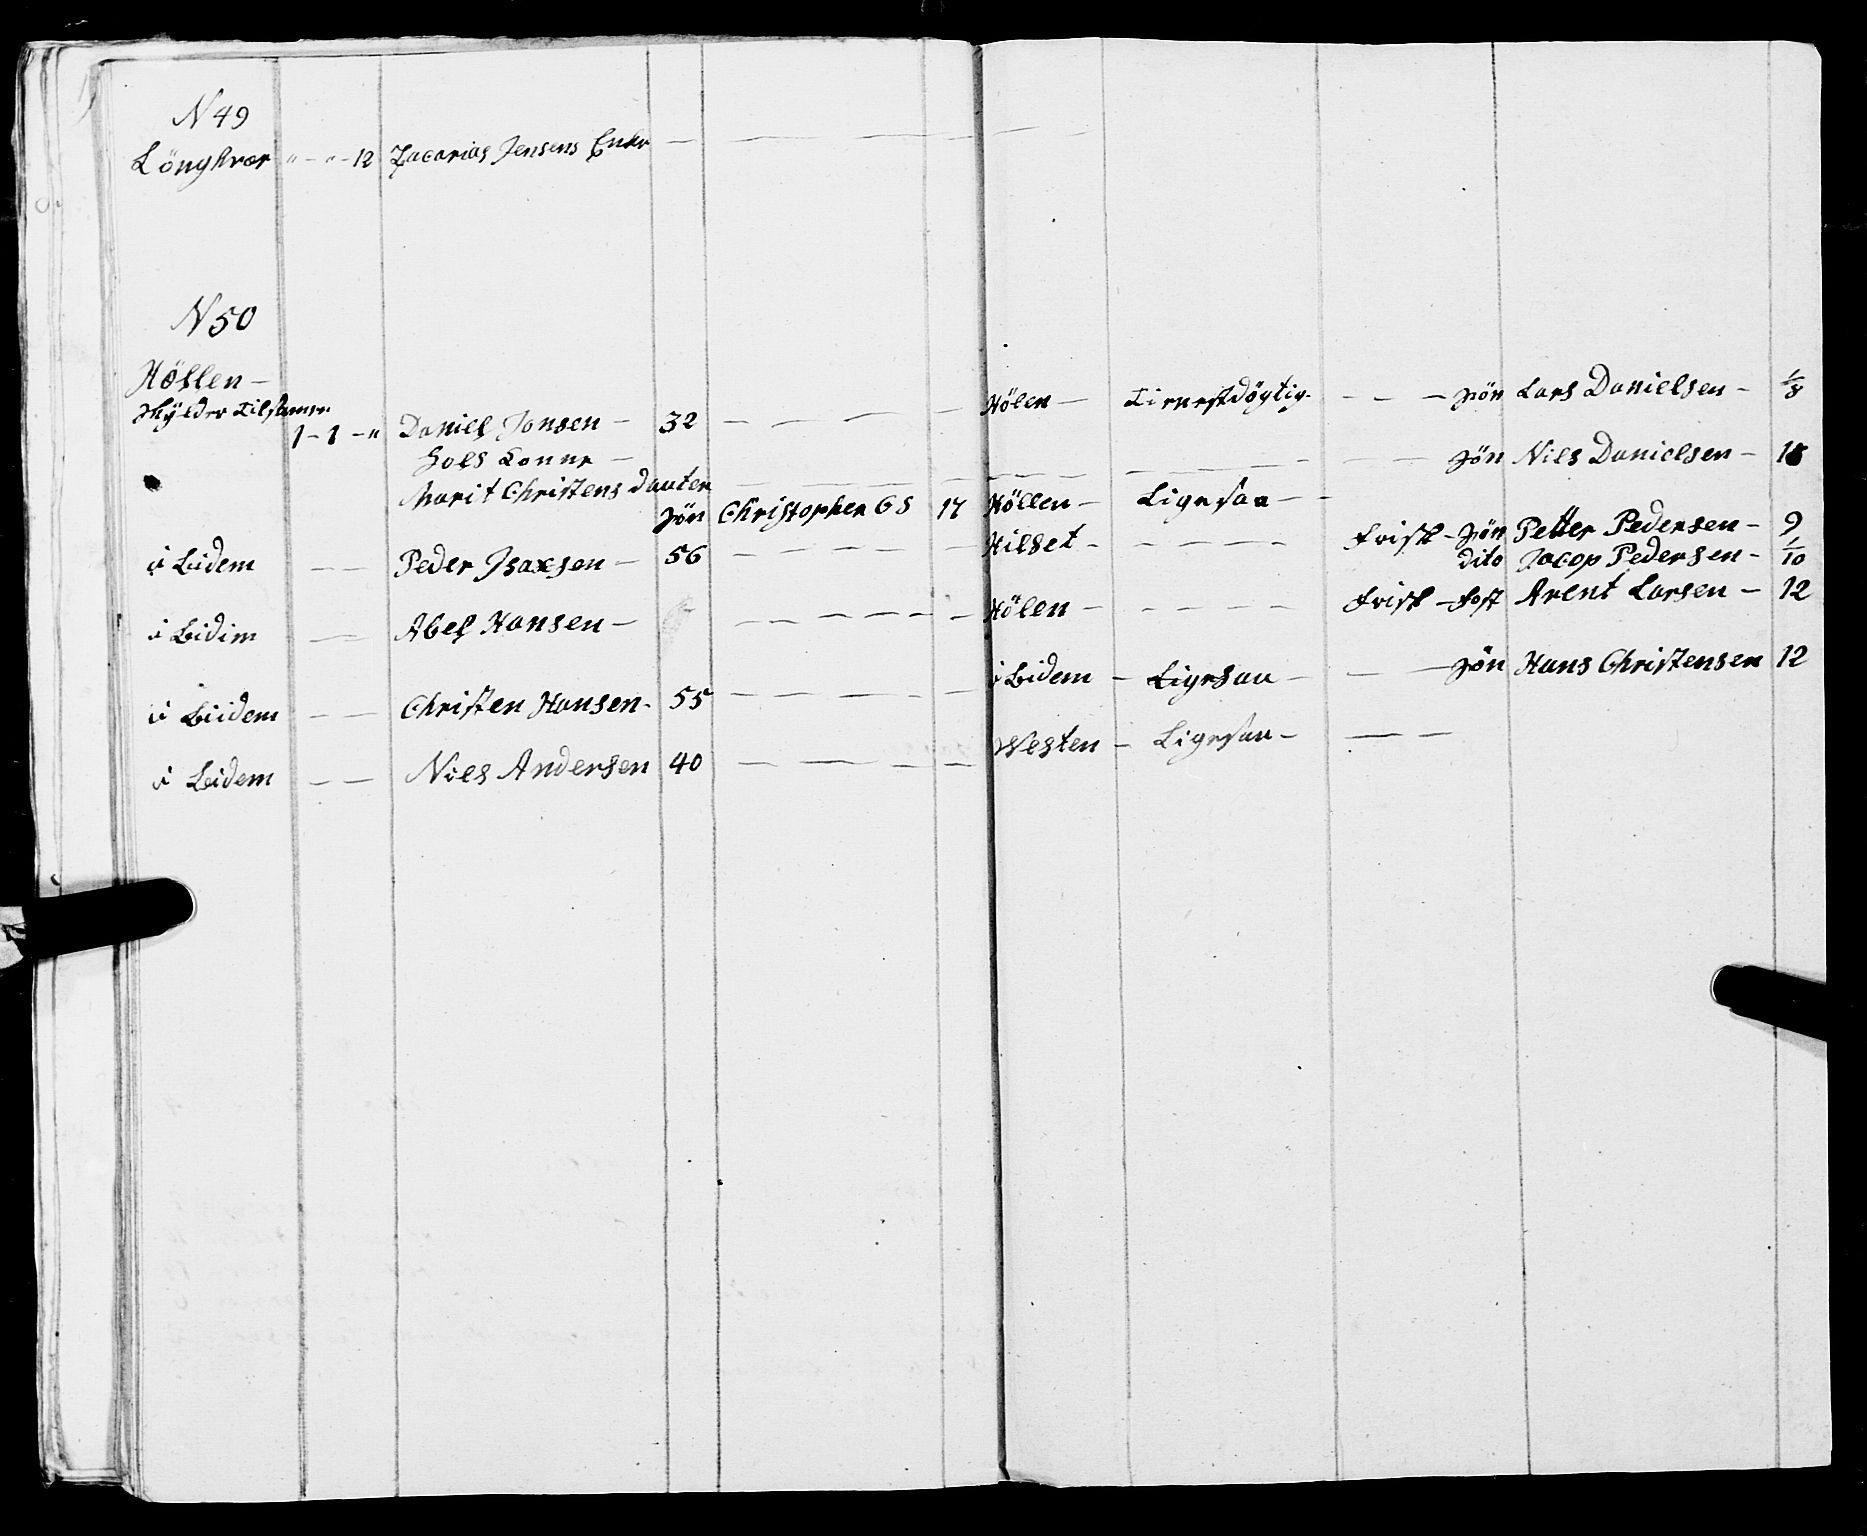 N 49
Löngkvær " - " - 12 Zacarias Jensens Enke
N 50
Höllen -
Skylder Tilsamen
1 - 1 - " Daniel Jonsen - 32 Hölen - Tienestdögtig - Sön Lars Danielsen - 1/8
Hols Konne -
Marit Christens dauter Sön Nils Danielsen - 18
Sön Christopher GS 17 Höllen - Ligesaa -
i Lidem Peder Isaxsen - 56 Hilset - Frisk - Sön Petter Pedersen - 9
dito Jacop Pedersen - 1/10
i Lidim Abel Hansen - Hölen - Frisk - Fost Arent Larsen - 12
i Lidem Christen Hansen - 55 i Lidem - Ligesaa - Sön Hans Christensen 12
i Lidem Niels Andersen 40 Westen - Ligesaa -